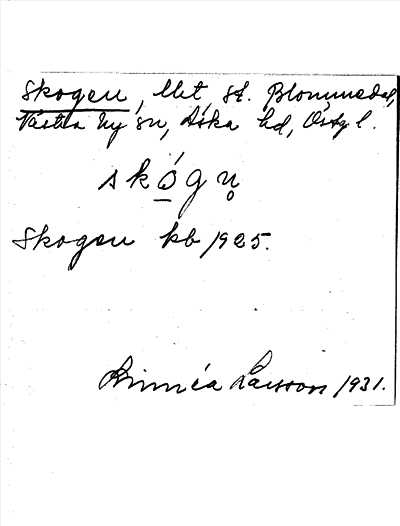 Skogen, lht st. Blommedal,
Västra Ny sn, Aska hd, Östg l.
skó̲gn̥
Skogen kb 1925.
Linnéa Larsson 1931.